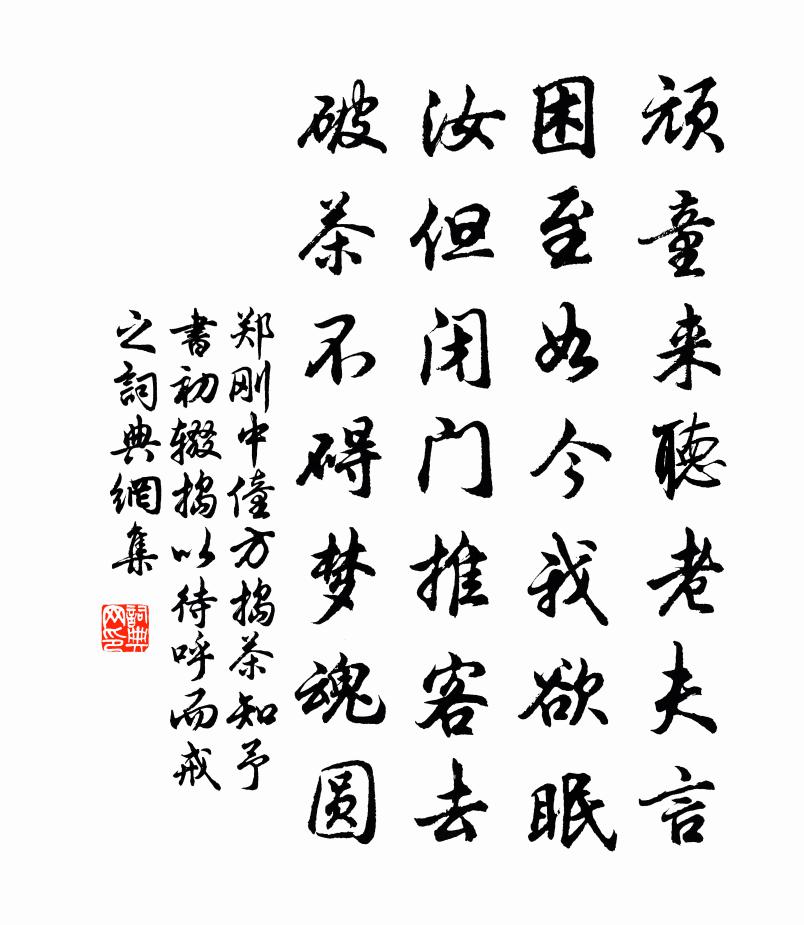 顽童来聽老夫言
困至如今我欲眠
汝但闭门推客去
破茶不碍梦魂圆
郑刚中僮方捣茶知予
書初辍捣以待呼而戒
之詞典網集
詞典
网印